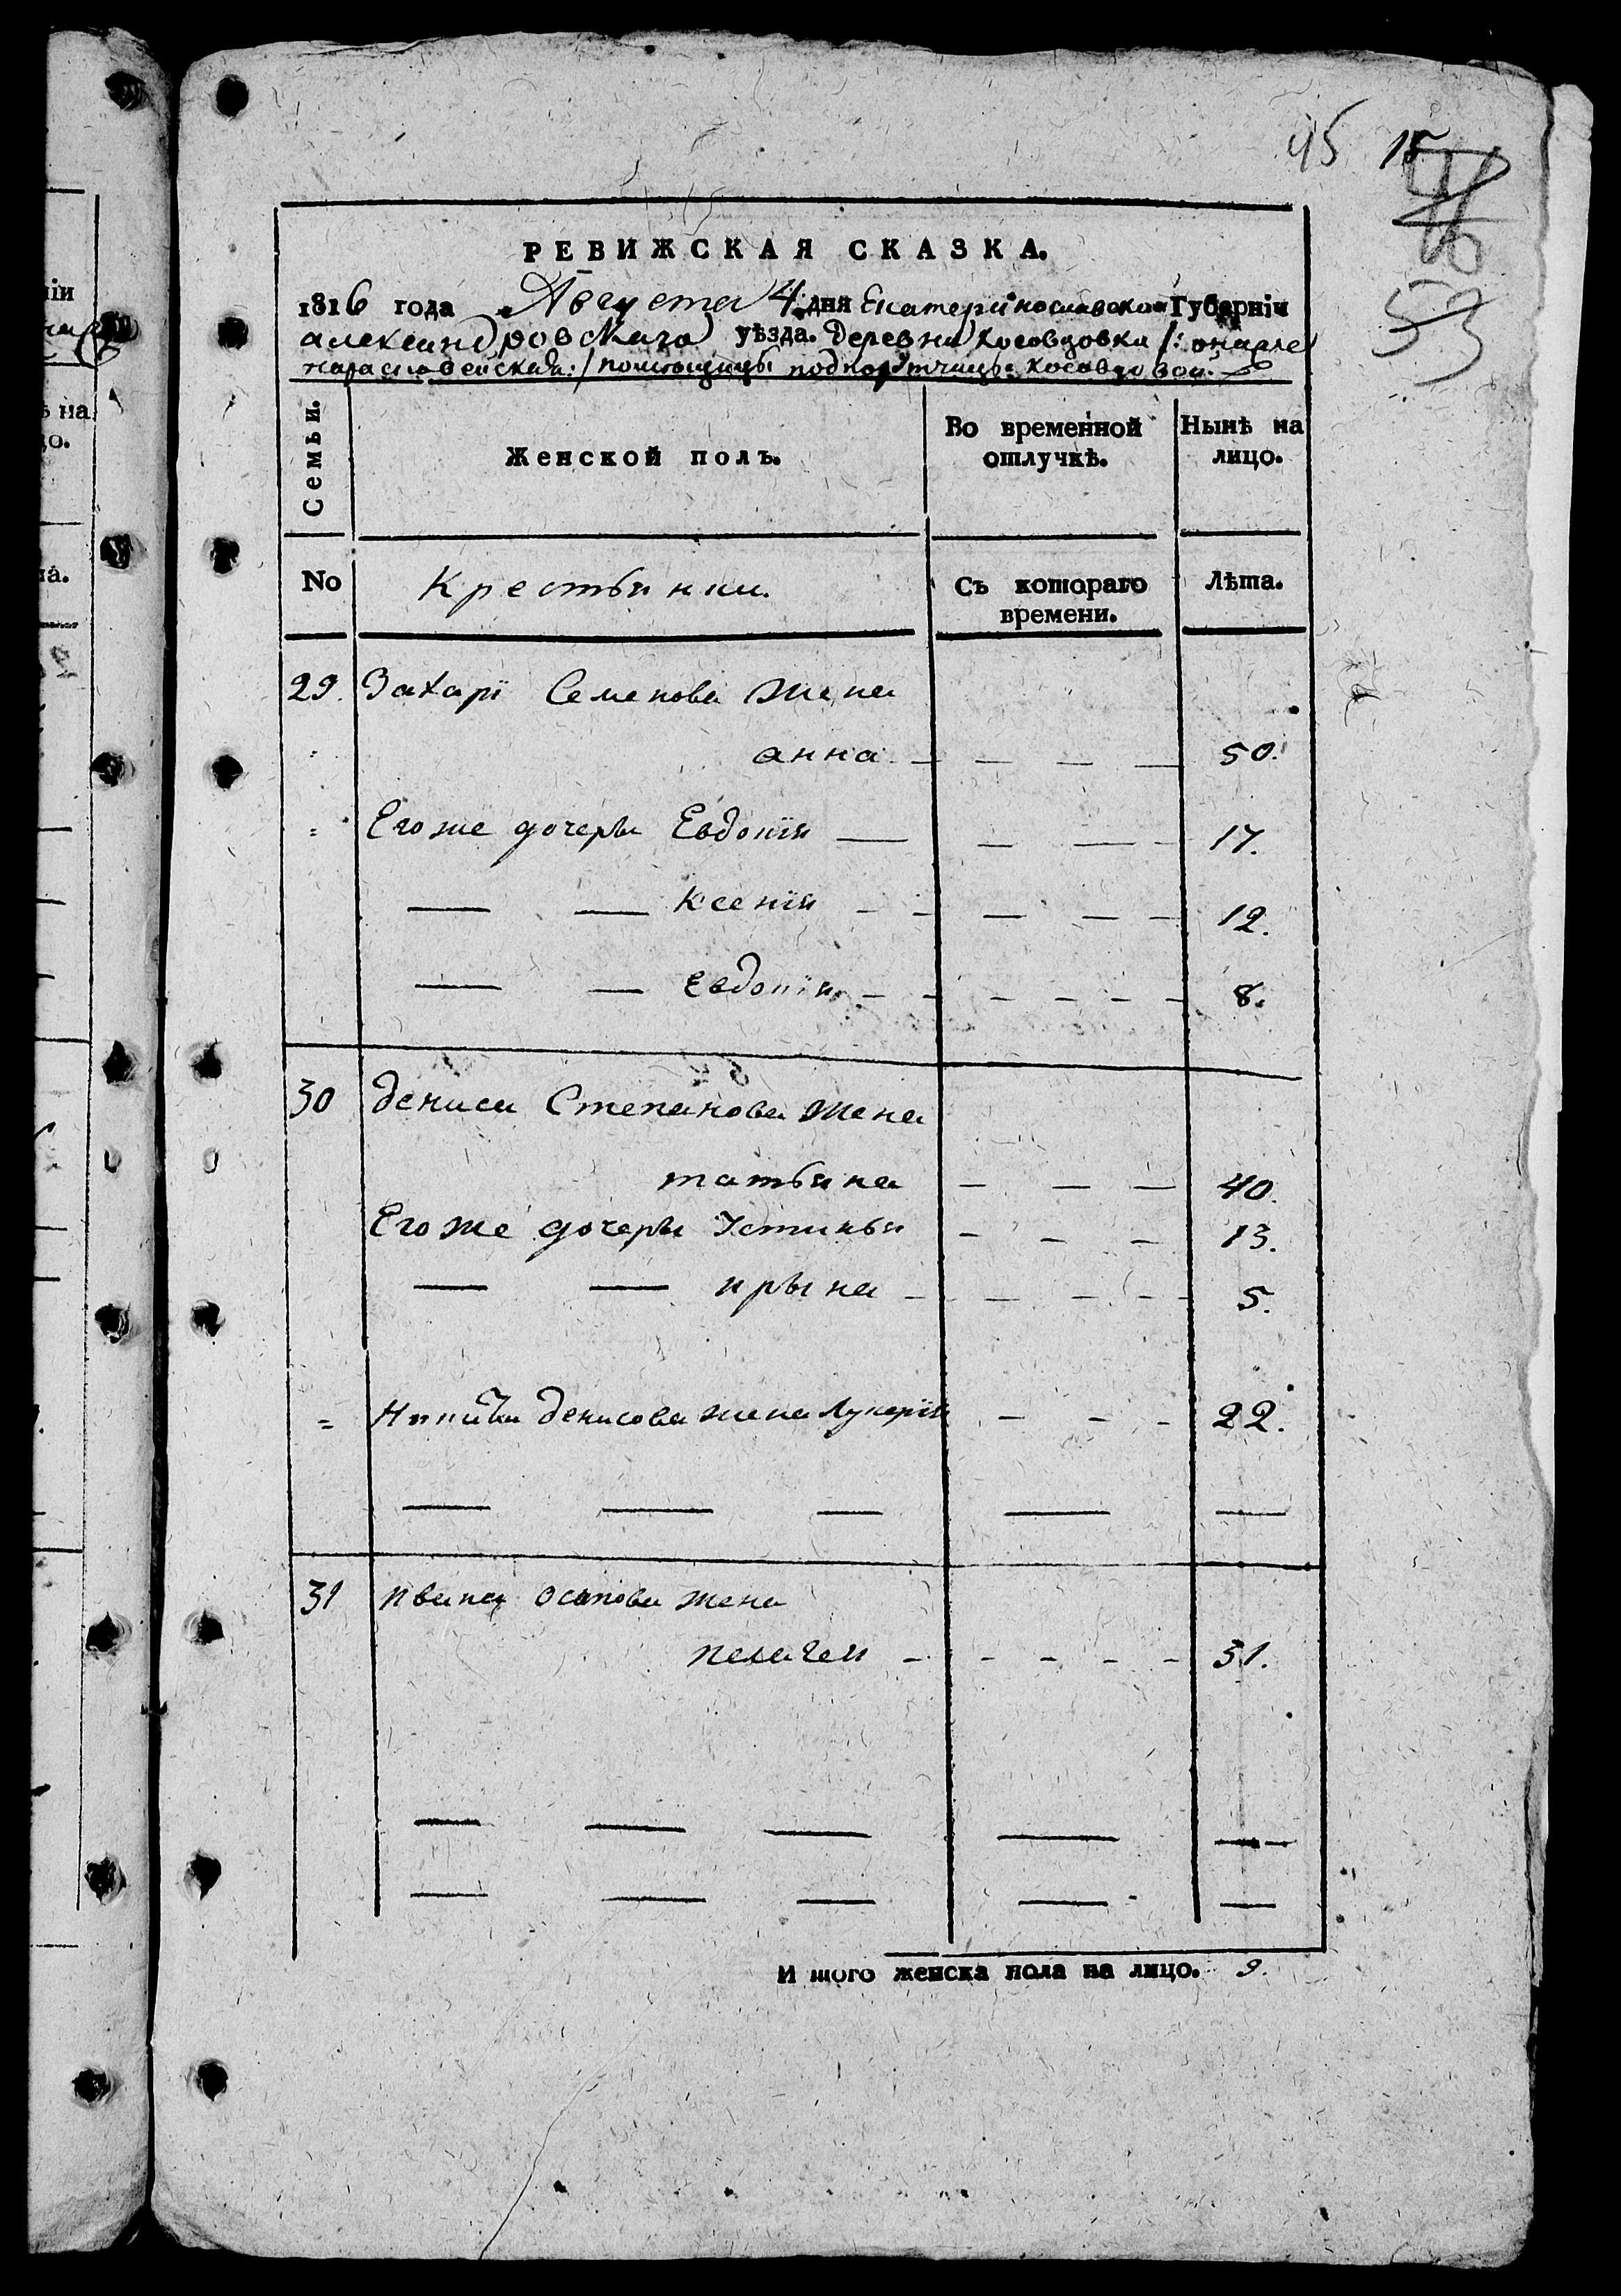 45 15
53
РЕВИЖСКАЯ СКАЗКА.
1816 года Августа 4 дня Екатеринославской Губерніи
александровскаго уѣзда. деревни Косовцовки /: онаже
тарасновейская :/ помющицы подпорутчицы Косовцовой.
Семьи.
Женской полъ.
Во временной отлучкѣ.
Нынѣ на лицо.
No Крестьянки. Съ котораго времени. Лѣта.
29. Захарі Семенова жена
анна 50.
Егоже дочеры Евдокія 17.
Ксенія 12.
Евдокія 8.
30 дениса Степанова жена
татьяна 40.
Егоже дочеры Устинья 13.
ирына 5.
Никиты денисова жена Лукерія 22.
31 ивана осипова жена
пелагея 31.
И того женска пола на лицо. 9.